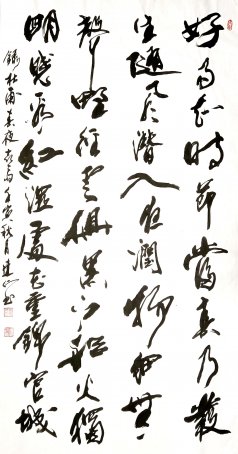 好雨知時節當春乃發
生隨風潛入夜潤物細無
聲野徑雲俱黑江船火獨
明曉看紅濕處花重錦官城
錄杜甫春夜喜雨壬寅秋月建山書